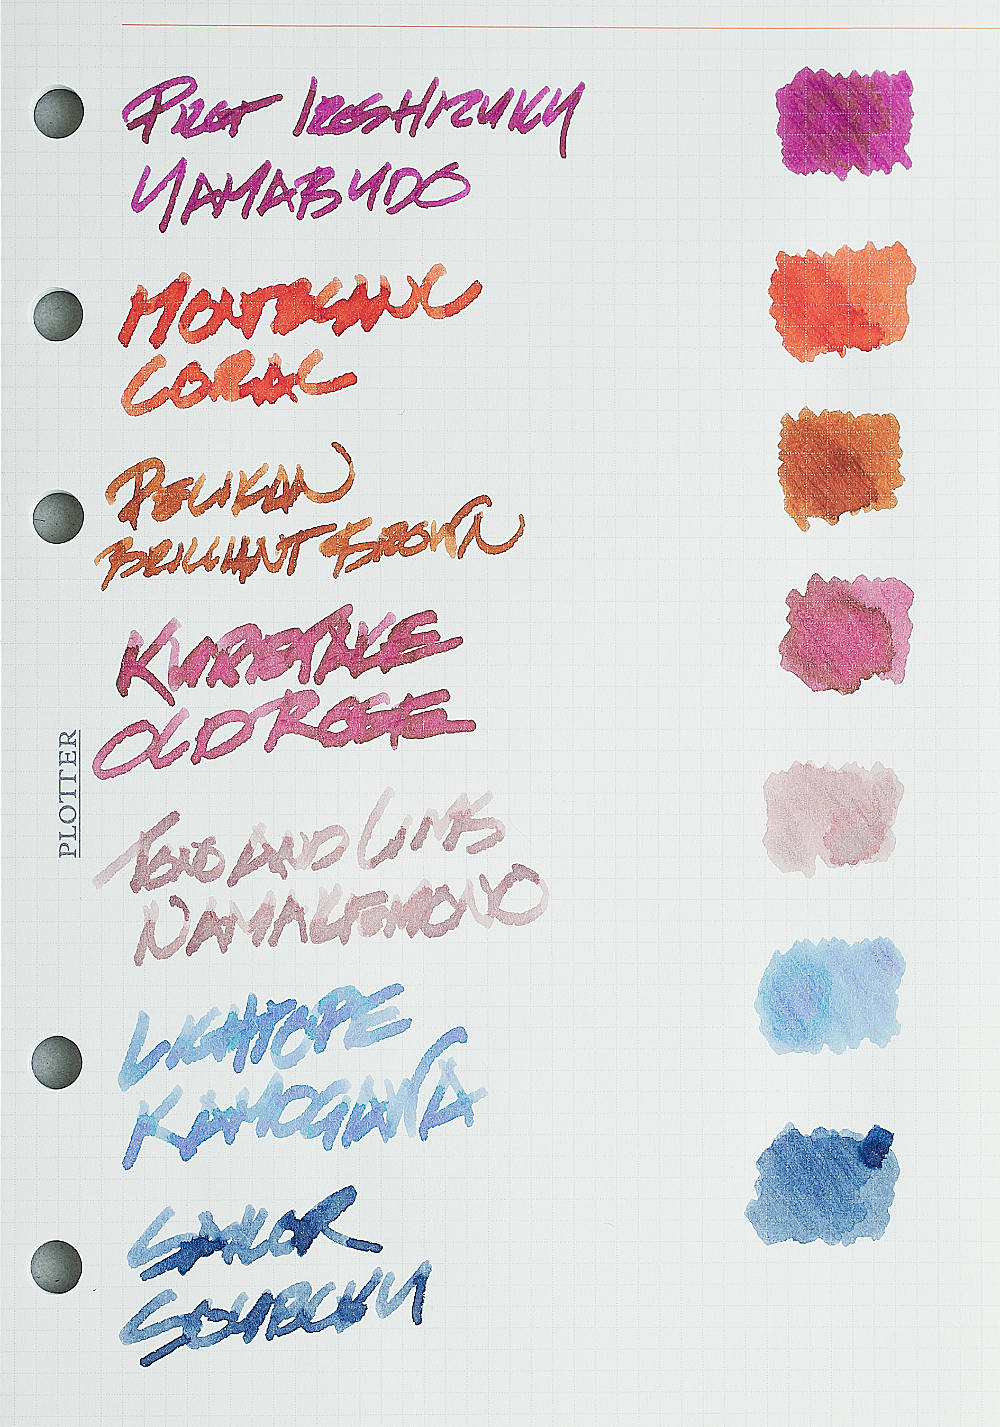 PILOT IROSHIZUKU
YAMABUDO
MONTBLANC
CORAL
PELIKAN
BRILLIANT BROWN
KURETAKE
OLD ROSE
TONO AND LIMS
NAMAKEMONO
LIGHTOPE
KAMOGAWA
SAILOR
SOUBOKU
PLOTTER